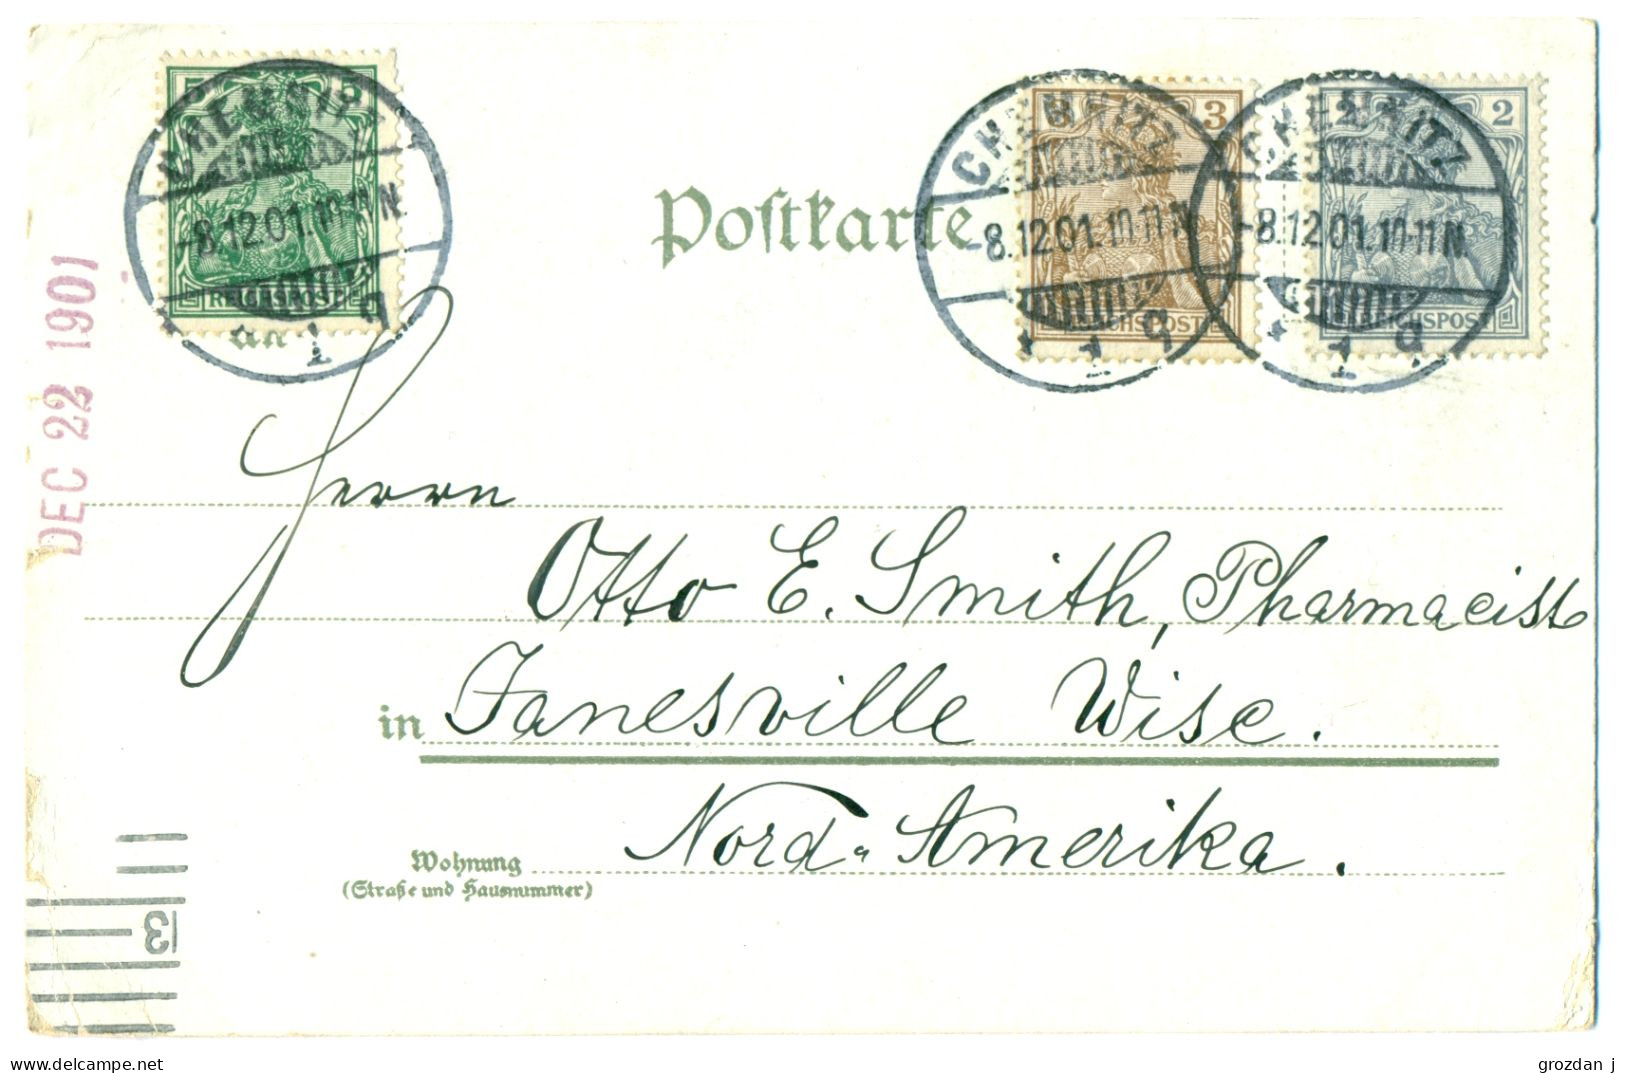 5 5
CHEMNITZ
-8.12.01.10-11N.
REICHSPOST
1 q
an
Postkarte
3 3
CHEMNITZ
-8.12.01.10-11N.
REICHSPOST
* 1 q
2 2
CHEMNITZ
-8.12.01.10-11N.
REICHSPOST
* 1 q
DEC 22 1901
Herrn
Otto E. Smith, Pharmacist
in Janesville Wisc.
Nord-Amerika.
Wohnung
(Straße und Hausnummer)
3
https://www.delcampe.net
grozdan j